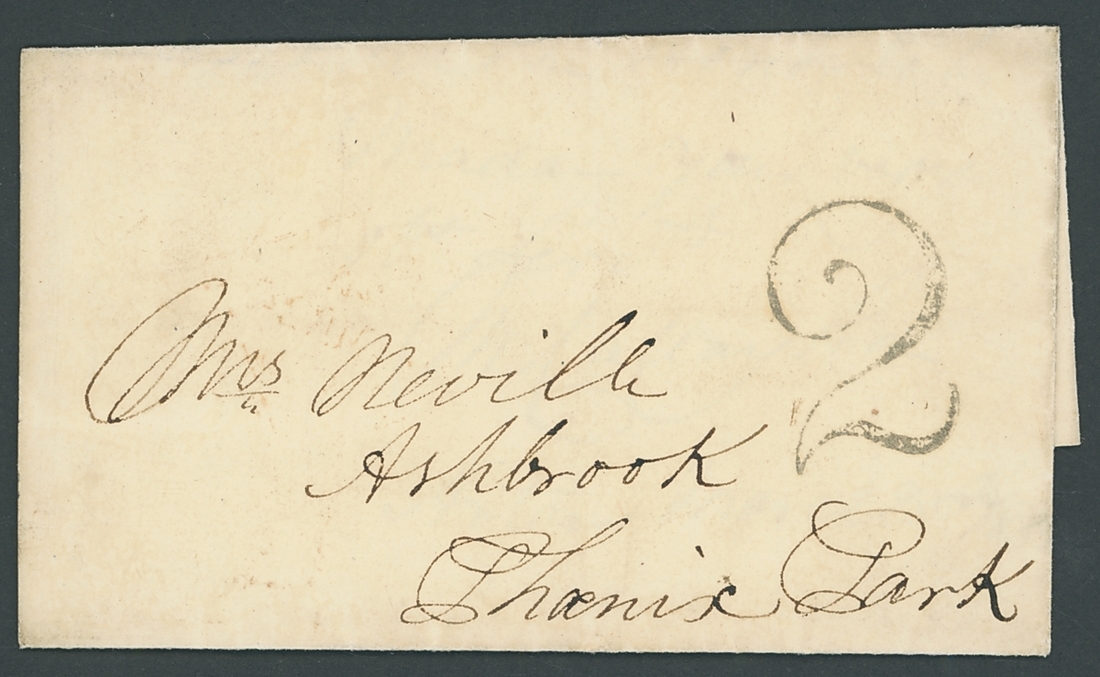 2
Mrs Neville
Ashbrook
Phœnix Park